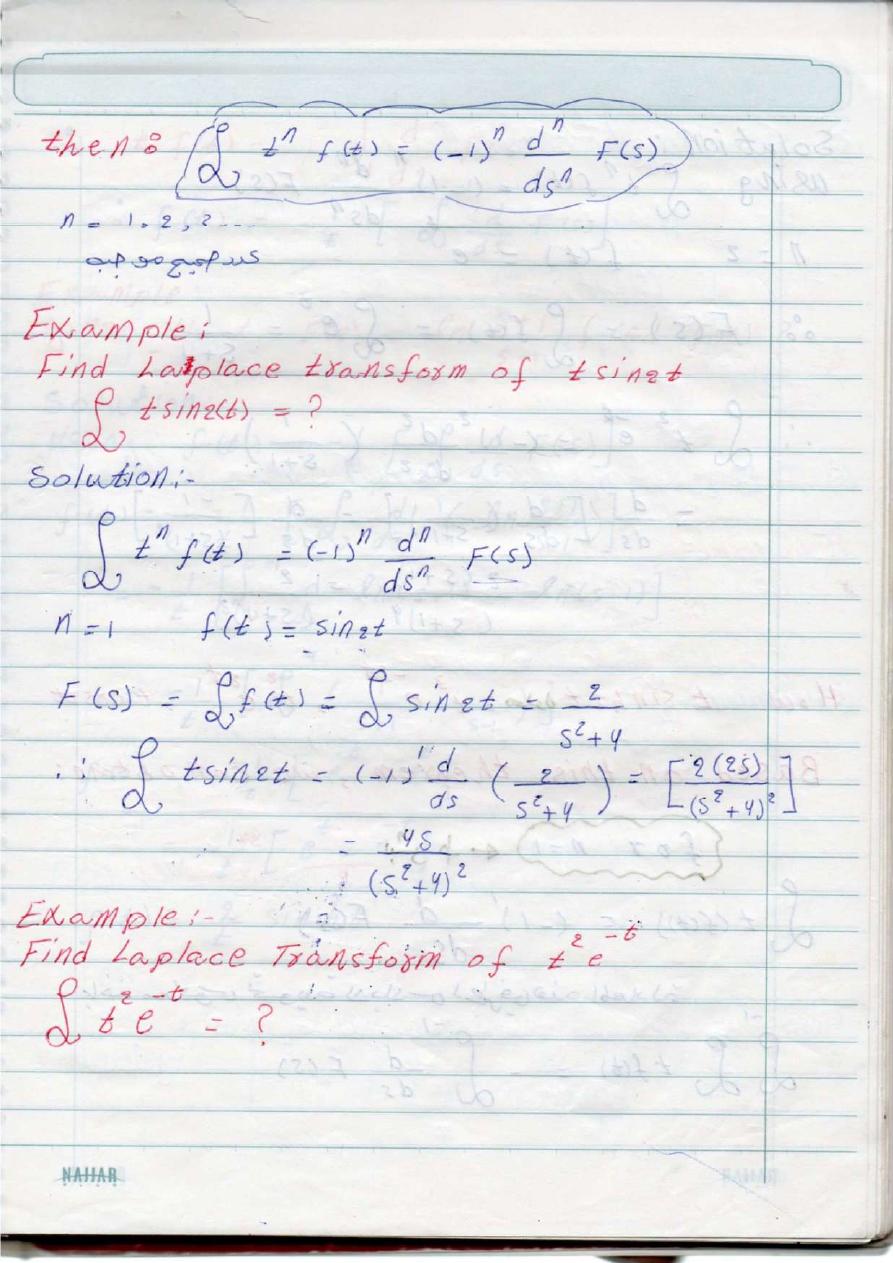 then: ℒ tⁿ f(t) = (-1)ⁿ dⁿ/dsⁿ F(s)
n = 1, 2, 2 ...
Example:
Find Laplace transform of t sin2t
ℒ t sin2(t) = ?
Solution:-
ℒ tⁿ f(t) = (-1)ⁿ dⁿ/dsⁿ F(s)
n = 1 f(t) = sin2t
F(s) = ℒ f(t) = ℒ sin2t = 2/(s²+4)
∴ ℒ t sin2t = (-1)¹ d/ds (2/(s²+4)) = [2(2s)/(s²+4)²]
= 4s/(s²+4)²
Example:-
Find Laplace Transform of t² e⁻ᵗ
ℒ t² e⁻ᵗ = ?
NAJJAR